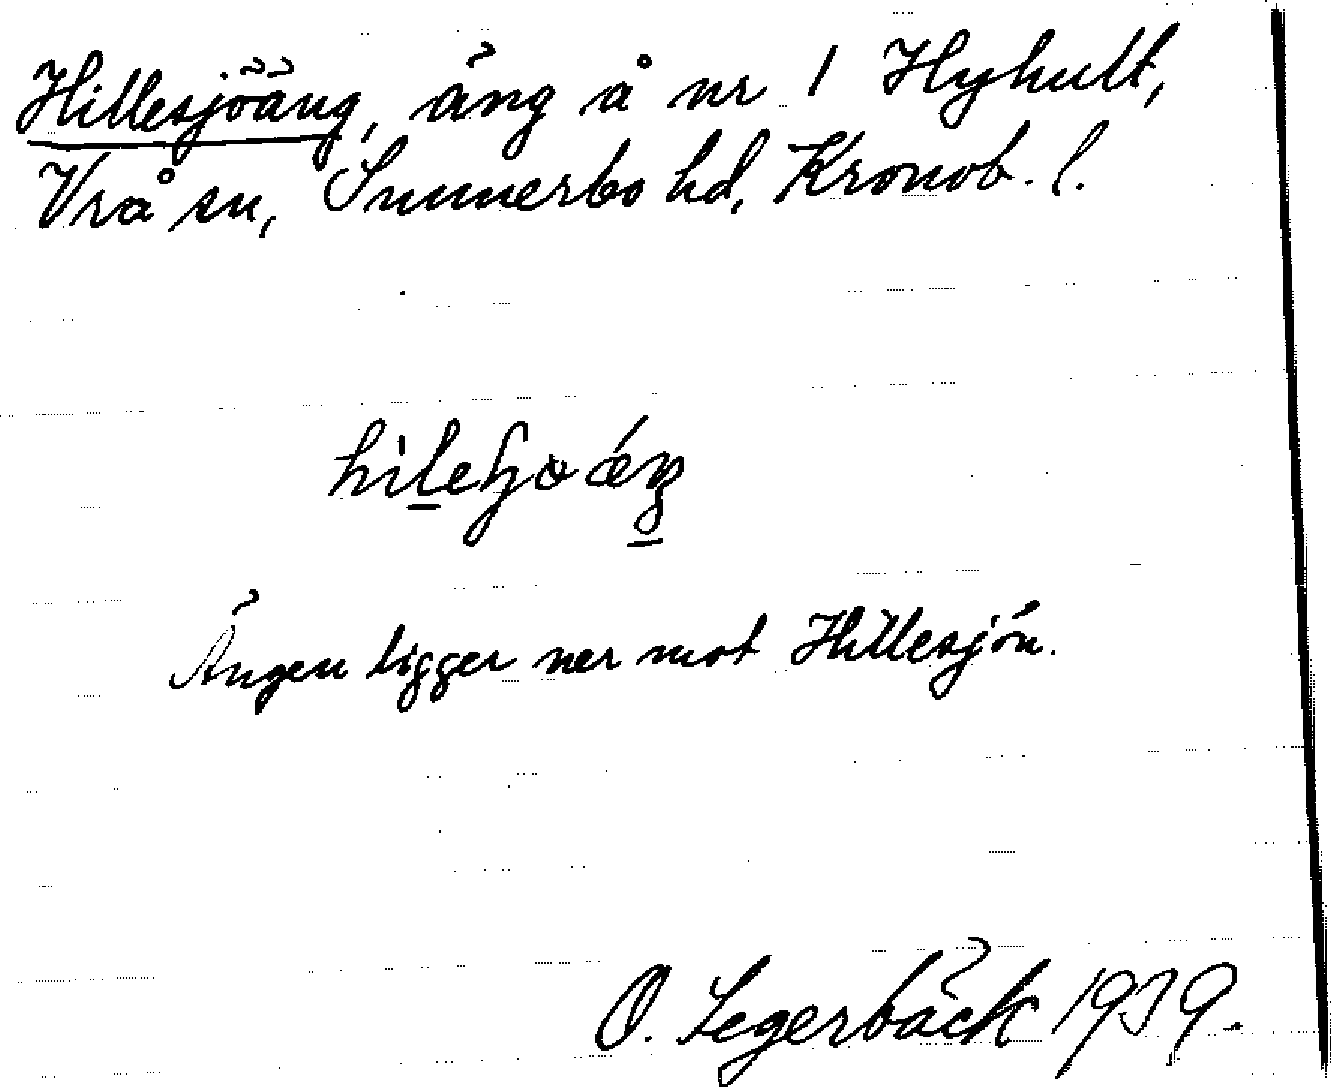 Hillesjöäng, äng å nr 1 Hyhult,
Vrå sn, Sunnerbo hd, Kronob. l.
Ängen ligger ner mot Hillesjön.
O. Segerbäck 1939.